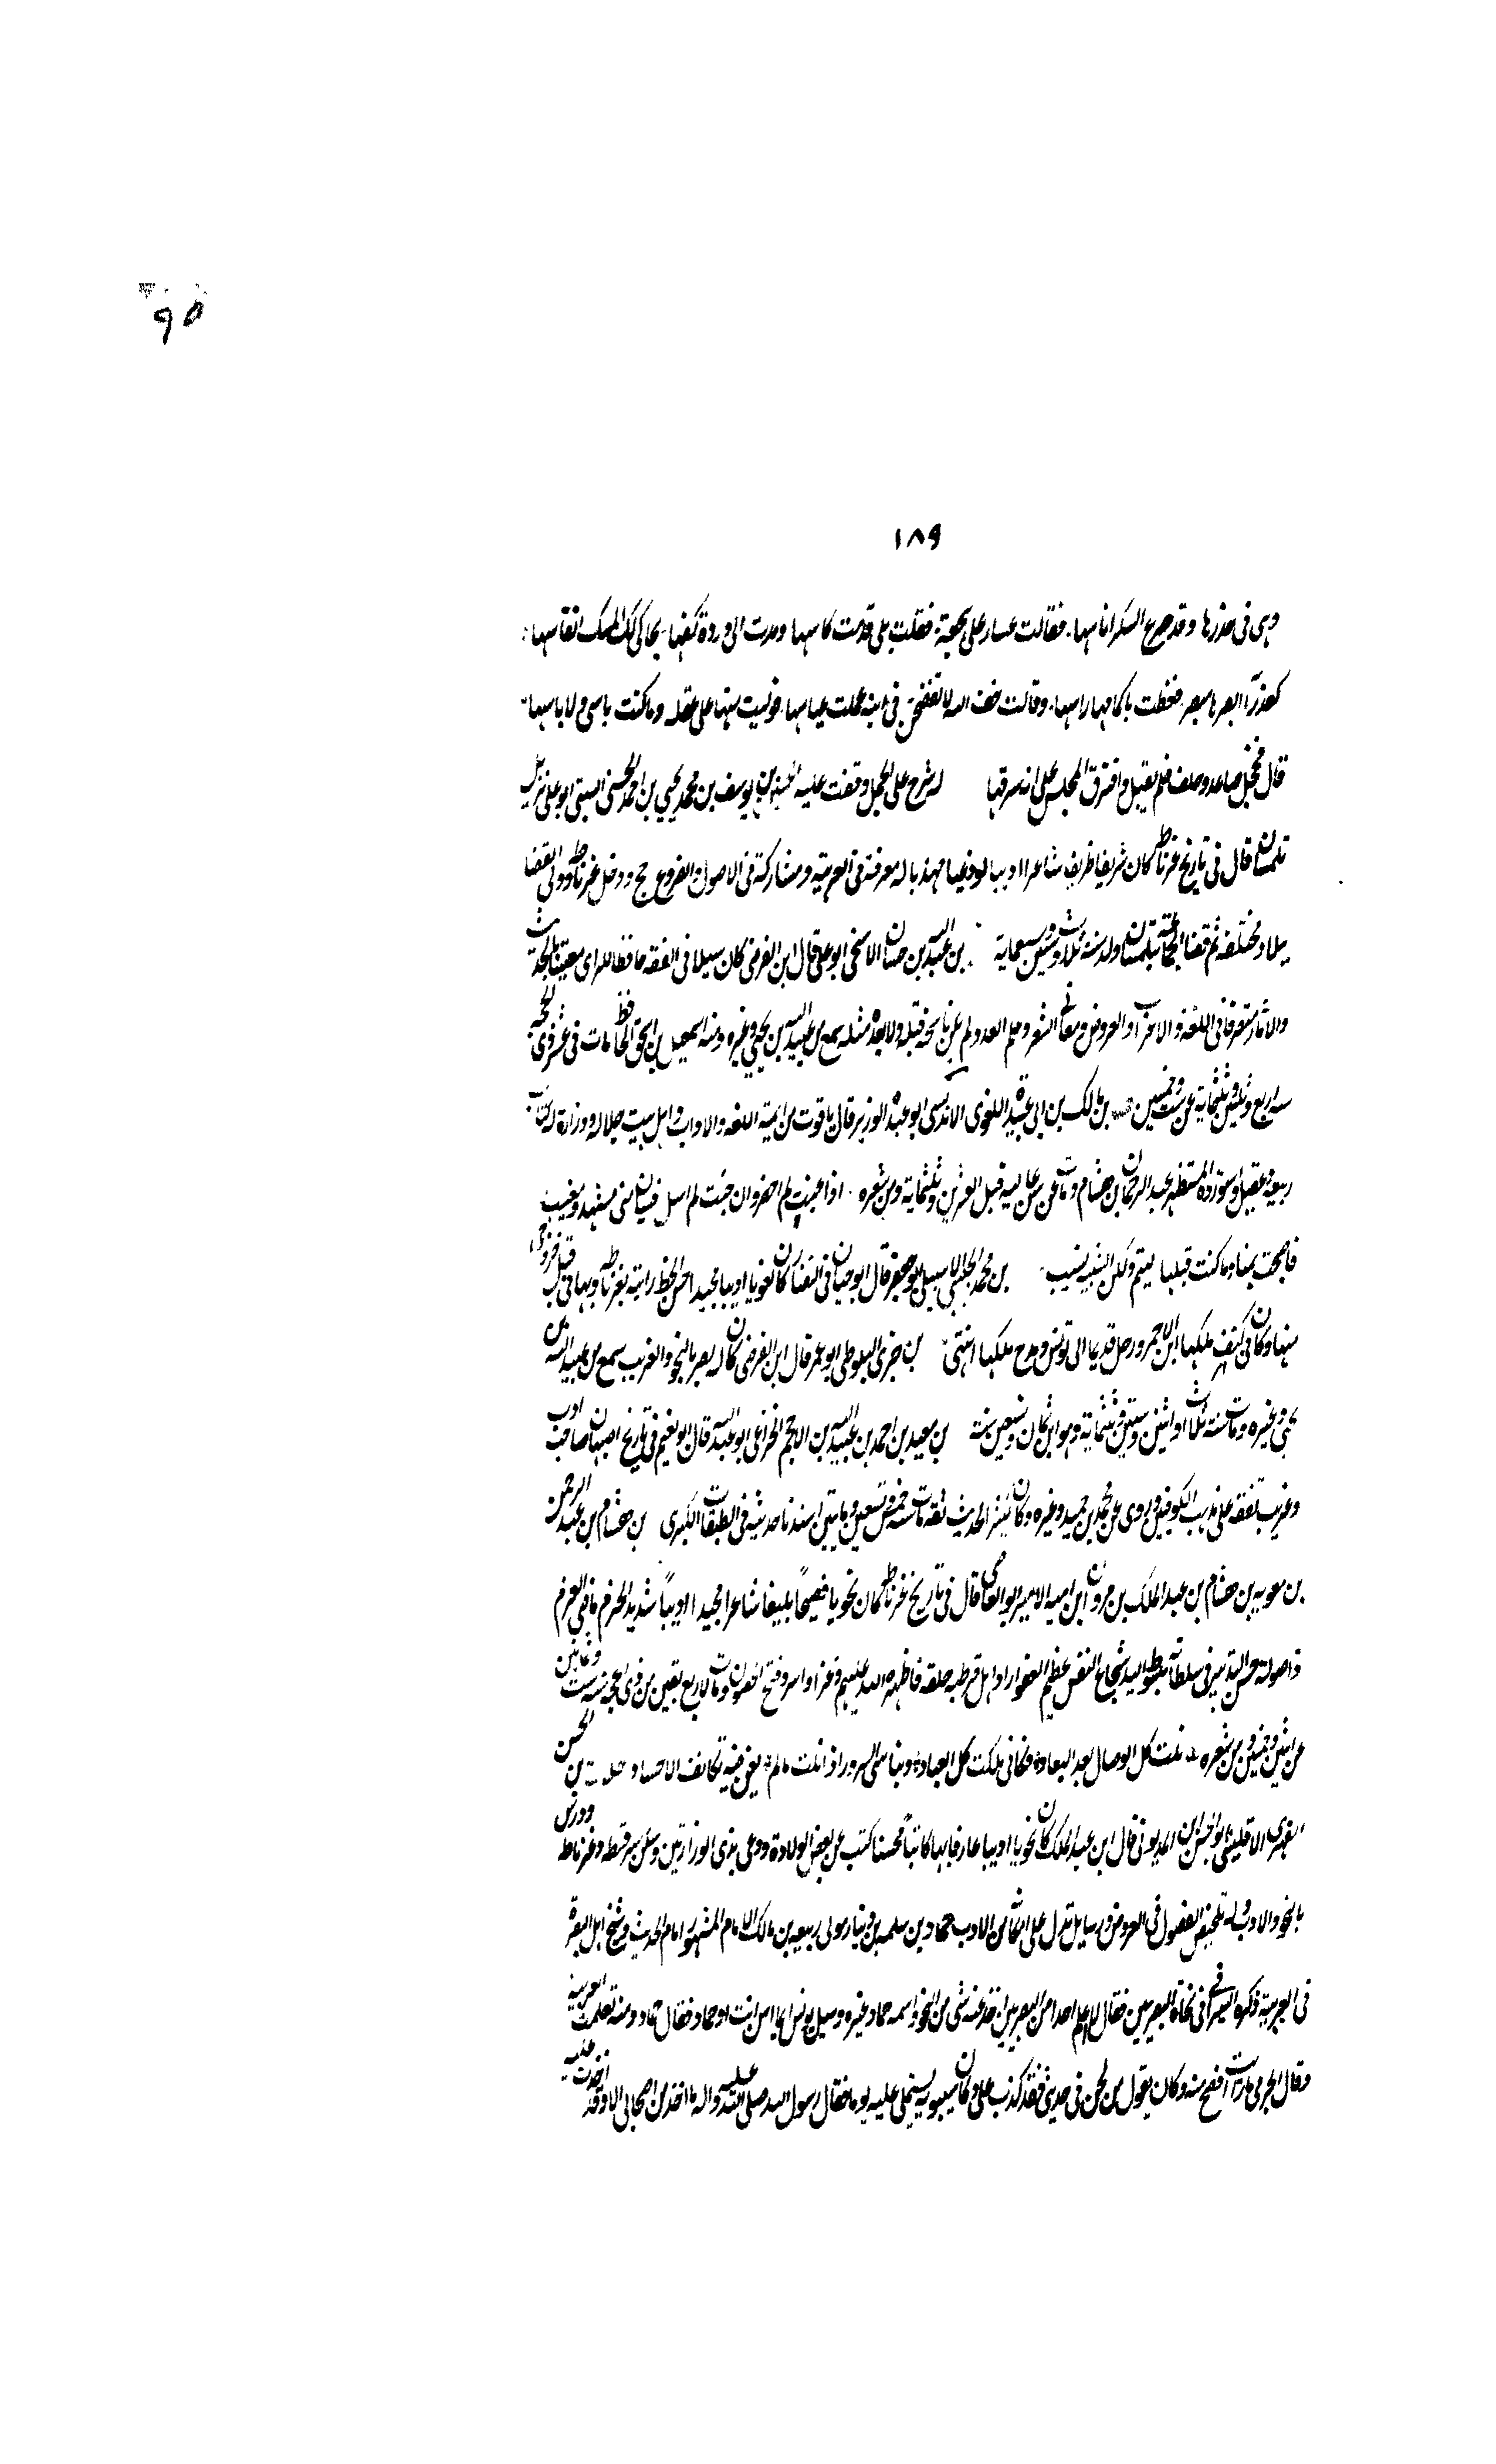 ٩٥
١٨٩
وهى فى خدرها وقد صرع السكر اناسها. فقالت عسار على هجعة: فقلت بلى قدمت كاسها ومدت الى وردة كفها. يحاكى لك المسك انفاسها:
كعذراء ابصرها مبصر. فغطت باكمامها راسها. وقالت خف الله لا تفضحن فى ابنة عملت عباسها. فوليت عنها على عقله وما كنت ناسى ولا ناسها
قال فخجل صاعد وحلف فلم يقبل وافترق المجلس على انه سرقها له شرح على الجمل وقفت عليه الحسن بن يوسف بن محمد يحيى بن احمد الحسنى السبتى ابو على نزيل
تلمسان قال فى تاريخ غرناطه كان شريفا ظريفا شاعرا اديبا لوذعيا مهذبا له معرفة فى العربية ومشاركة فى الاصول والفروع حج ودخل غرناطه وولى القضا
ببلاد مختلفه ثم قضا الجماعة بتلمسان ولد سنة ثلاث وستين وسبعماية بن عبد الله بن حسان الاسنجى ابو على قال ابن الفرضى كان سيلا فى الفقه حافظا للراى معتنيا بالحديث
والاثار متصرفا فى اللغة والاعراب والعروض ومعانى الشعر وعلم العدد ولم يكن بناحيته قبله ولا بعده مثله سمع من عبيد الله بن يحيى وغيره ومنه اسمعيل بن اسحق الحافظ مات فى عشر ذى الحجة
سنة اربع وثلثين وثلثماية عن ست وخمسين بن مالك بن ابى عبدة اللغوى الاندلسى ابو عبدة الوزير قال ياقوت من ائمة اللغه والاداب واهل بيت جلاله ووزارة له كتاب
ربيعة وعقيل واستوزره المستظهر عبد الرحمان بن هشام ومات عن سن عاليه قبل العشرين وثلثماية ومن شعره. اذا غبت لم احضر وان جئت لم اسل فسيان منى مشهد ومغيب
فاصبحت تيميا وما كنت قبلها لتيم ولكن الشبيه نسيب بن محمد الجلبى الاسبيلى ابو جعفر قال ابو حيان فى النضار كان لغويا اديبا مجيدا حسن الخط رايته بغرناطه وبها فى قبل خروجى
منها وكان فى كنف ملكها ابن الاحمر ورحل قديما الى تونس ومدح ملكها انتهى بن جزى البلوطى ابو عمر قال ابن الفرضى كان له بصر بالنحو والغريب سمع من عبيد الله بن
يحيى وغيره ومات سنة ثلاث او اثنين وستين وثلثماية وهو ابن ثمان وتسعين سنة بن سعيد بن احمد بن عبد الله بن الاجم الخزاعى ابو عبد الله قال ابو نعيم فى تاريخ اصبهان صاحب ادب
وغريب تفقه على مذهب الكوفيين وروى عن محمد بن حميد وغيره وكان كثير الحديث ثقه مات سنة خمس وتسعين وماتين اسندنا حديثه فى الطبقات الكبرى بن هشام بن عبد الرحمن
بن معويه بن هشام بن عبد الملك بن مروان ابن اميه الامير ابو العاصى قال فى تاريخ غرناطه كان نحويا فصيحًا بليغا شاعرا مجيدا اديبًا شديد الحزم ماضى العزم
ذا صولة حسن التدبير فى سلطانه مبسوط اليد شجاع النفس عظيم العفو اراد اهل قرطبه خلعه فاظهره الله عليهم وغزا واسر وفتح الحصون ومات لاربع بقين من ذى الحجة سنة ست وماتين
عن اثنين وخمسين ومن شعره نلت كل الوصال بعد البعاد فكانى ملكت كل العباد وتناسى السرور اذ انلت مالم يغن فيه تكاثف الاحساد بن الحسن
الفهرى الاقليشى ابو الحسن ابن المديونى قال ابن عبد الملك كان نحويا اديبا عارفا بها كاتبًا محسنا كتب عن بعض الولاة ودعى بذى الوزارتين وسكن سرقسطه وغرناطه ودرس
بالنحو والادب وله تلخيص الفصول فى العروض ورسايل تدل على مكانه من الادب حماد بن سلمه بن دينار مولى ربيعه بن مالك الامام المشهور امام الحديث وشيخ اهل البصره
فى العربية ذكره السيرافى فى نحاة البصريين فقال لا اعلم احدا من البصريين اخذ عنه شى من النحو اسمه حماد غيره وسيل يونس ايما اسن انت او حماد فقال حماد ومنه تعلمت العربية
وقال الجرمى ما رايت افصح منه وكان يقول من لحن فى حديثى فقد كذب على وكان سيبويه يستملى عليه يوما فقال رسول الله صلى الله عليه واله ما احد من اصحابى الا وقد اخذت عليه